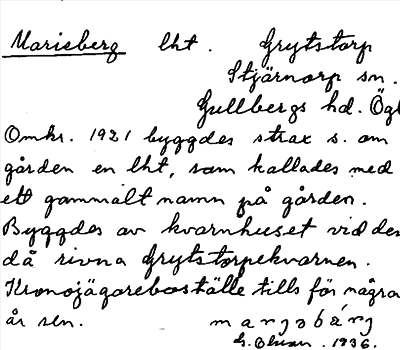 Marieberg lht. Grytstorp
Stjärnorp sn.
Gullbergs hd. Ögl
Omkr. 1921 byggdes strax s. om
gården en lht, som kallades med
ett gammalt namn på gården.
Byggdes av kvarnhuset vid den
då rivna Grytstorpekvarnen.
Kronojägareboställe tills för några
år sen. marjəbárj
G. 1936.